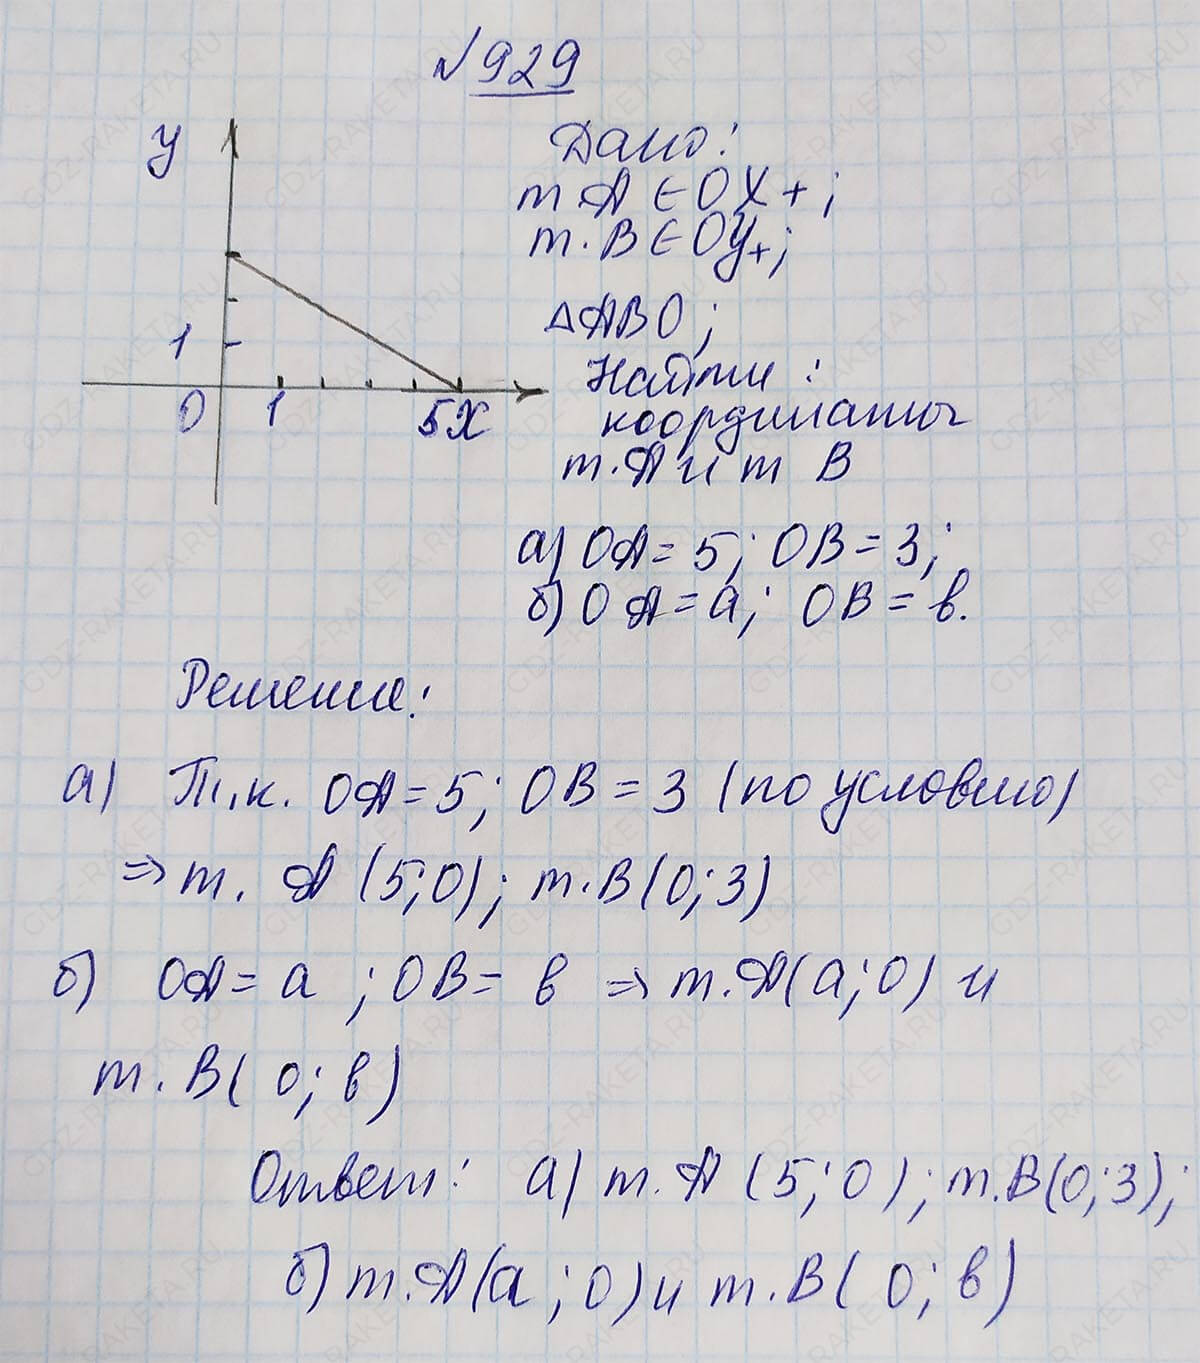 №929
y
Дано:
т A ∈ OX+;
т. B ∈ Oy+;
△ABO;
1
Найти:
0 1 5 X
координаты
т. A и т B
а) OA = 5; OB = 3;
б) OA = a; OB = в.
Решение:
а) Т.к. OA = 5; OB = 3 (по условию)
=> т. A (5;0); т. B (0;3)
б) OA = a ; OB = в => т. A(a;0) и
т. B( 0; в)
Ответ: а) т. A (5;0); т. B(0;3);
б) т. A(a;0) и т. B( 0; в)
GDZ-RAKETA.RU